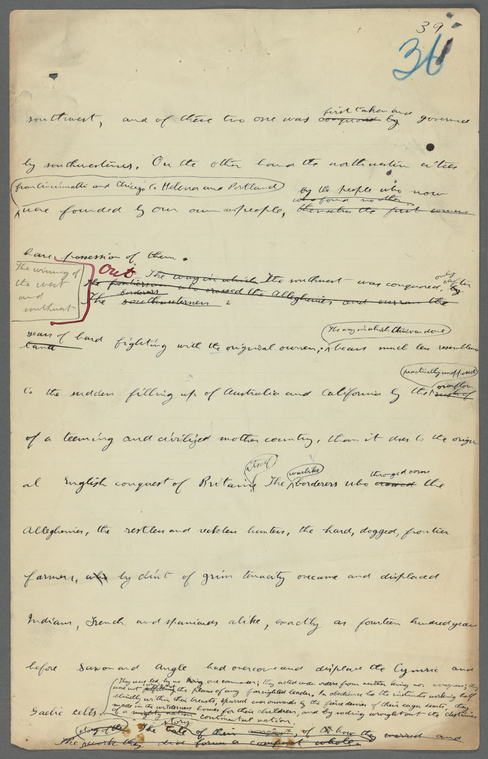 39
36
first taken and
southwest, and of these two one was conquered by governed
by southwesterners. On the other hand the northwestern cities
from Cincinnati and Chicago to Helena and Portland
by the people who now
were founded by our own people,
have possession of them.
The winning of
the west
and
southwest
Out
The way in which The southwest was conquered only after
the frontiersmen who crossed the Alleghanies and overran the
borderers
The southwesterners
The way in which this was done
years of hard fighting with the original owners; bears much less resemblance
practically unopposed
overflow
to the sudden filling up of Australia and California by the
of a teeming and civilized mother country, than it does to the origin
itself
warlike
thronged across
al English conquest of Britain. The borderers who crossed the
Alleghanies, the restless and reckless hunters, the hard, dogged, frontier
farmers, by dint of grim tenacity overcame and displaced
Indians, French and Spaniards alike, exactly as fourteen hundred years
before Saxon and Angle had overcome and displaced the Cymric and
They were led by no one commander; they acted under orders from neither king nor congress; they
were not the plans of any farsighted leader. In obedience to the instincts working half
blindly within their breasts, spurred ever onwards by the fierce desires of their eager hearts, they
made in the wilderness homes for their children, and by so doing wrought out the destinies
Gaelic celts.
of a continental nation.
story
The tale of their of how they warred and